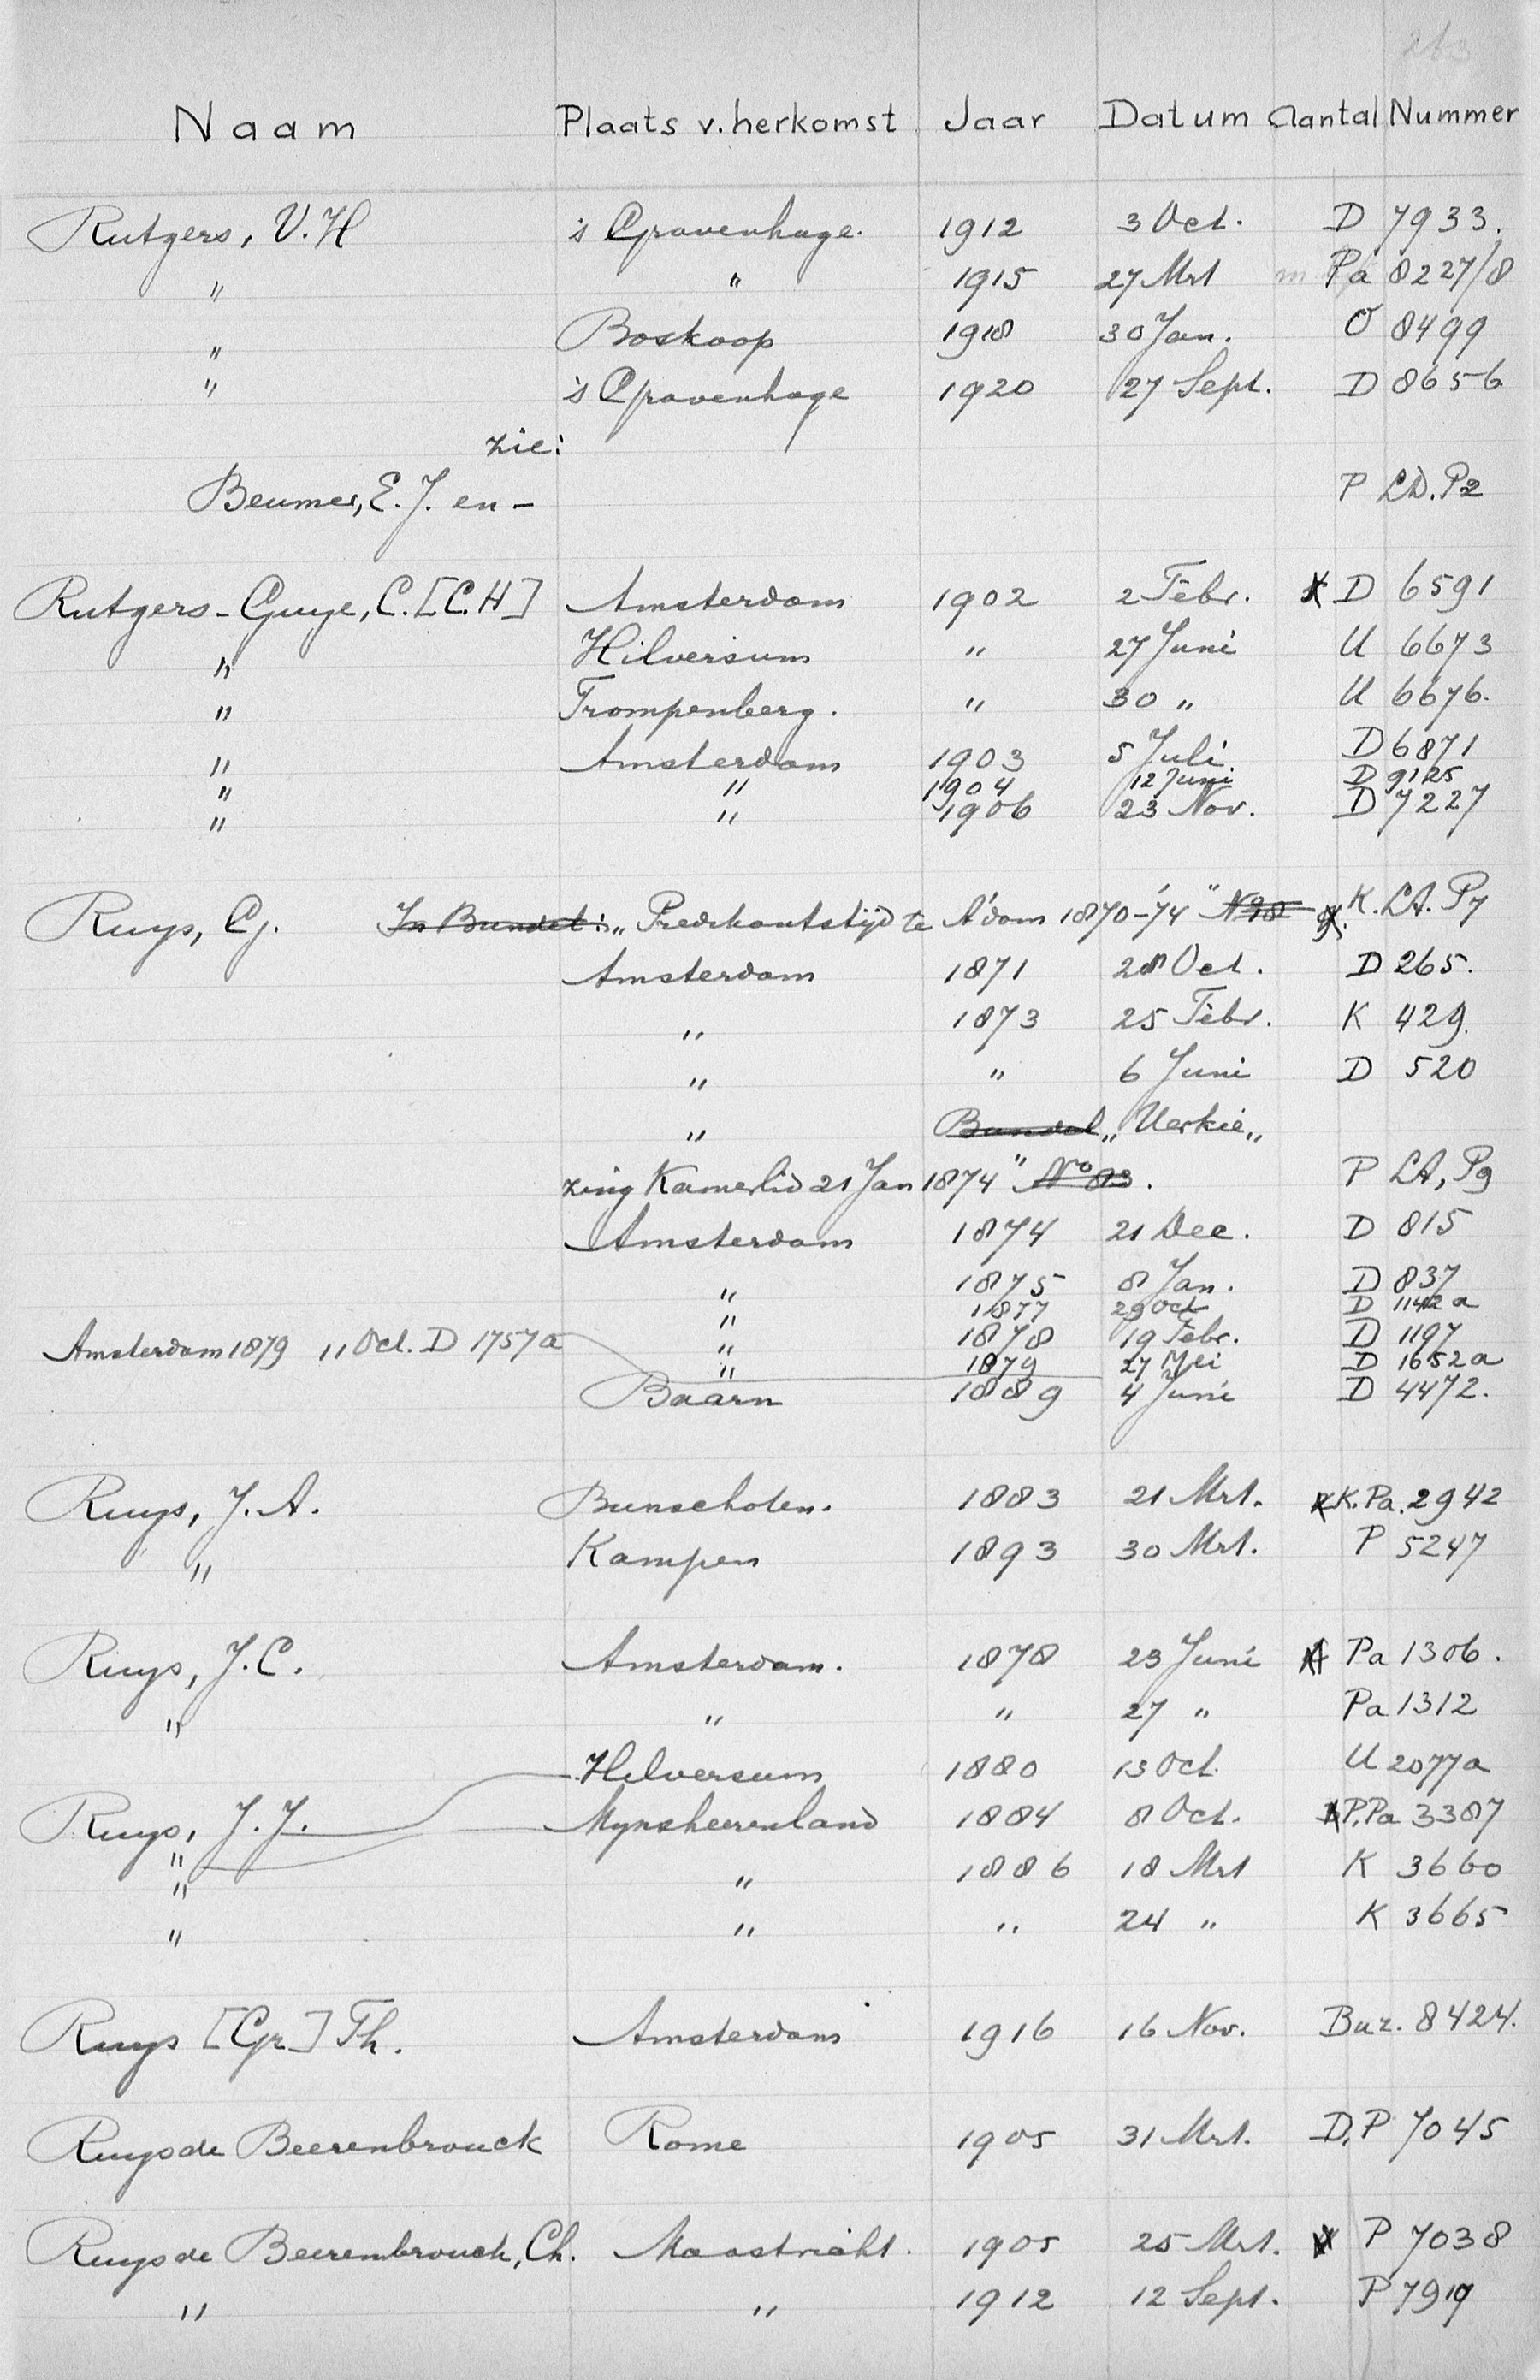 263
Naam Plaats v. herkomst Jaar Datum Aantal Nummer
Rutgers, V. H 's Gravenhage. 1912 3 Oct. D 7933.
" " 1915 27 Mrt Pa 8227/8
" Boskoop 1918 30 Jan. O 8499
" 's Gravenhage 1920 27 Sept. D 8656
zie:
Beumer, E. J. en - P LD. P2
Rutgers-Guye, C. [C.H] Amsterdam 1902 2 Febr. D 6591
" Hilversum " 27 Juni U 6673
" Trompenberg. " 30 " U 6676.
" Amsterdam 1903 5 Juli. D 6871
" " 1904 12 Juni D 9125
" " 1906 23 Nov. D 7227
Ruys, G. In Bundel: „Predikantstijd te A'dam 1870-'74" No 8 K. LA. P7
Amsterdam 1871 28 Oct. D 265.
" 1873 25 Febr. K 429.
" " 6 Juni D 520
" Bundel „Verkie„
zing Kamerlid 21 Jan 1874" No 83. P LA, P9
Amsterdam 1874 21 Dec. D 815
" 1875 8 Jan. D 837
" 1877 29 Oct D 1142a
Amsterdam 1879 11 Oct. D 1757a " 1878 19 Febr. D 1197
" 1879 27 Mei D 1652a
Baarn 1889 4 Juni D 4472.
Ruys, J. A. Bunschoten. 1883 21 Mrt. K. Pa. 2942
" Kampen 1893 30 Mrt. P 5247
Ruys, J. C. Amsterdam. 1878 23 Juni Pa 1306.
" " " 27 " Pa 1312
Hilversum 1880 13 Oct. U 2077a
Ruys, J. J. Mynsheerenland 1884 8 Oct. P. Pa 3387
"
" " 1886 18 Mrt K 3660
" " " 24 " K 3665
Ruys [Gr] Th. Amsterdam 1916 16 Nov. Buz. 8424.
Ruys de Beerenbrouck Rome 1905 31 Mrt. D. P 7045
Ruys de Beerenbrouck, Ch. Maastricht. 1905 25 Mrt. P 7038
" " 1912 12 Sept. P 7919